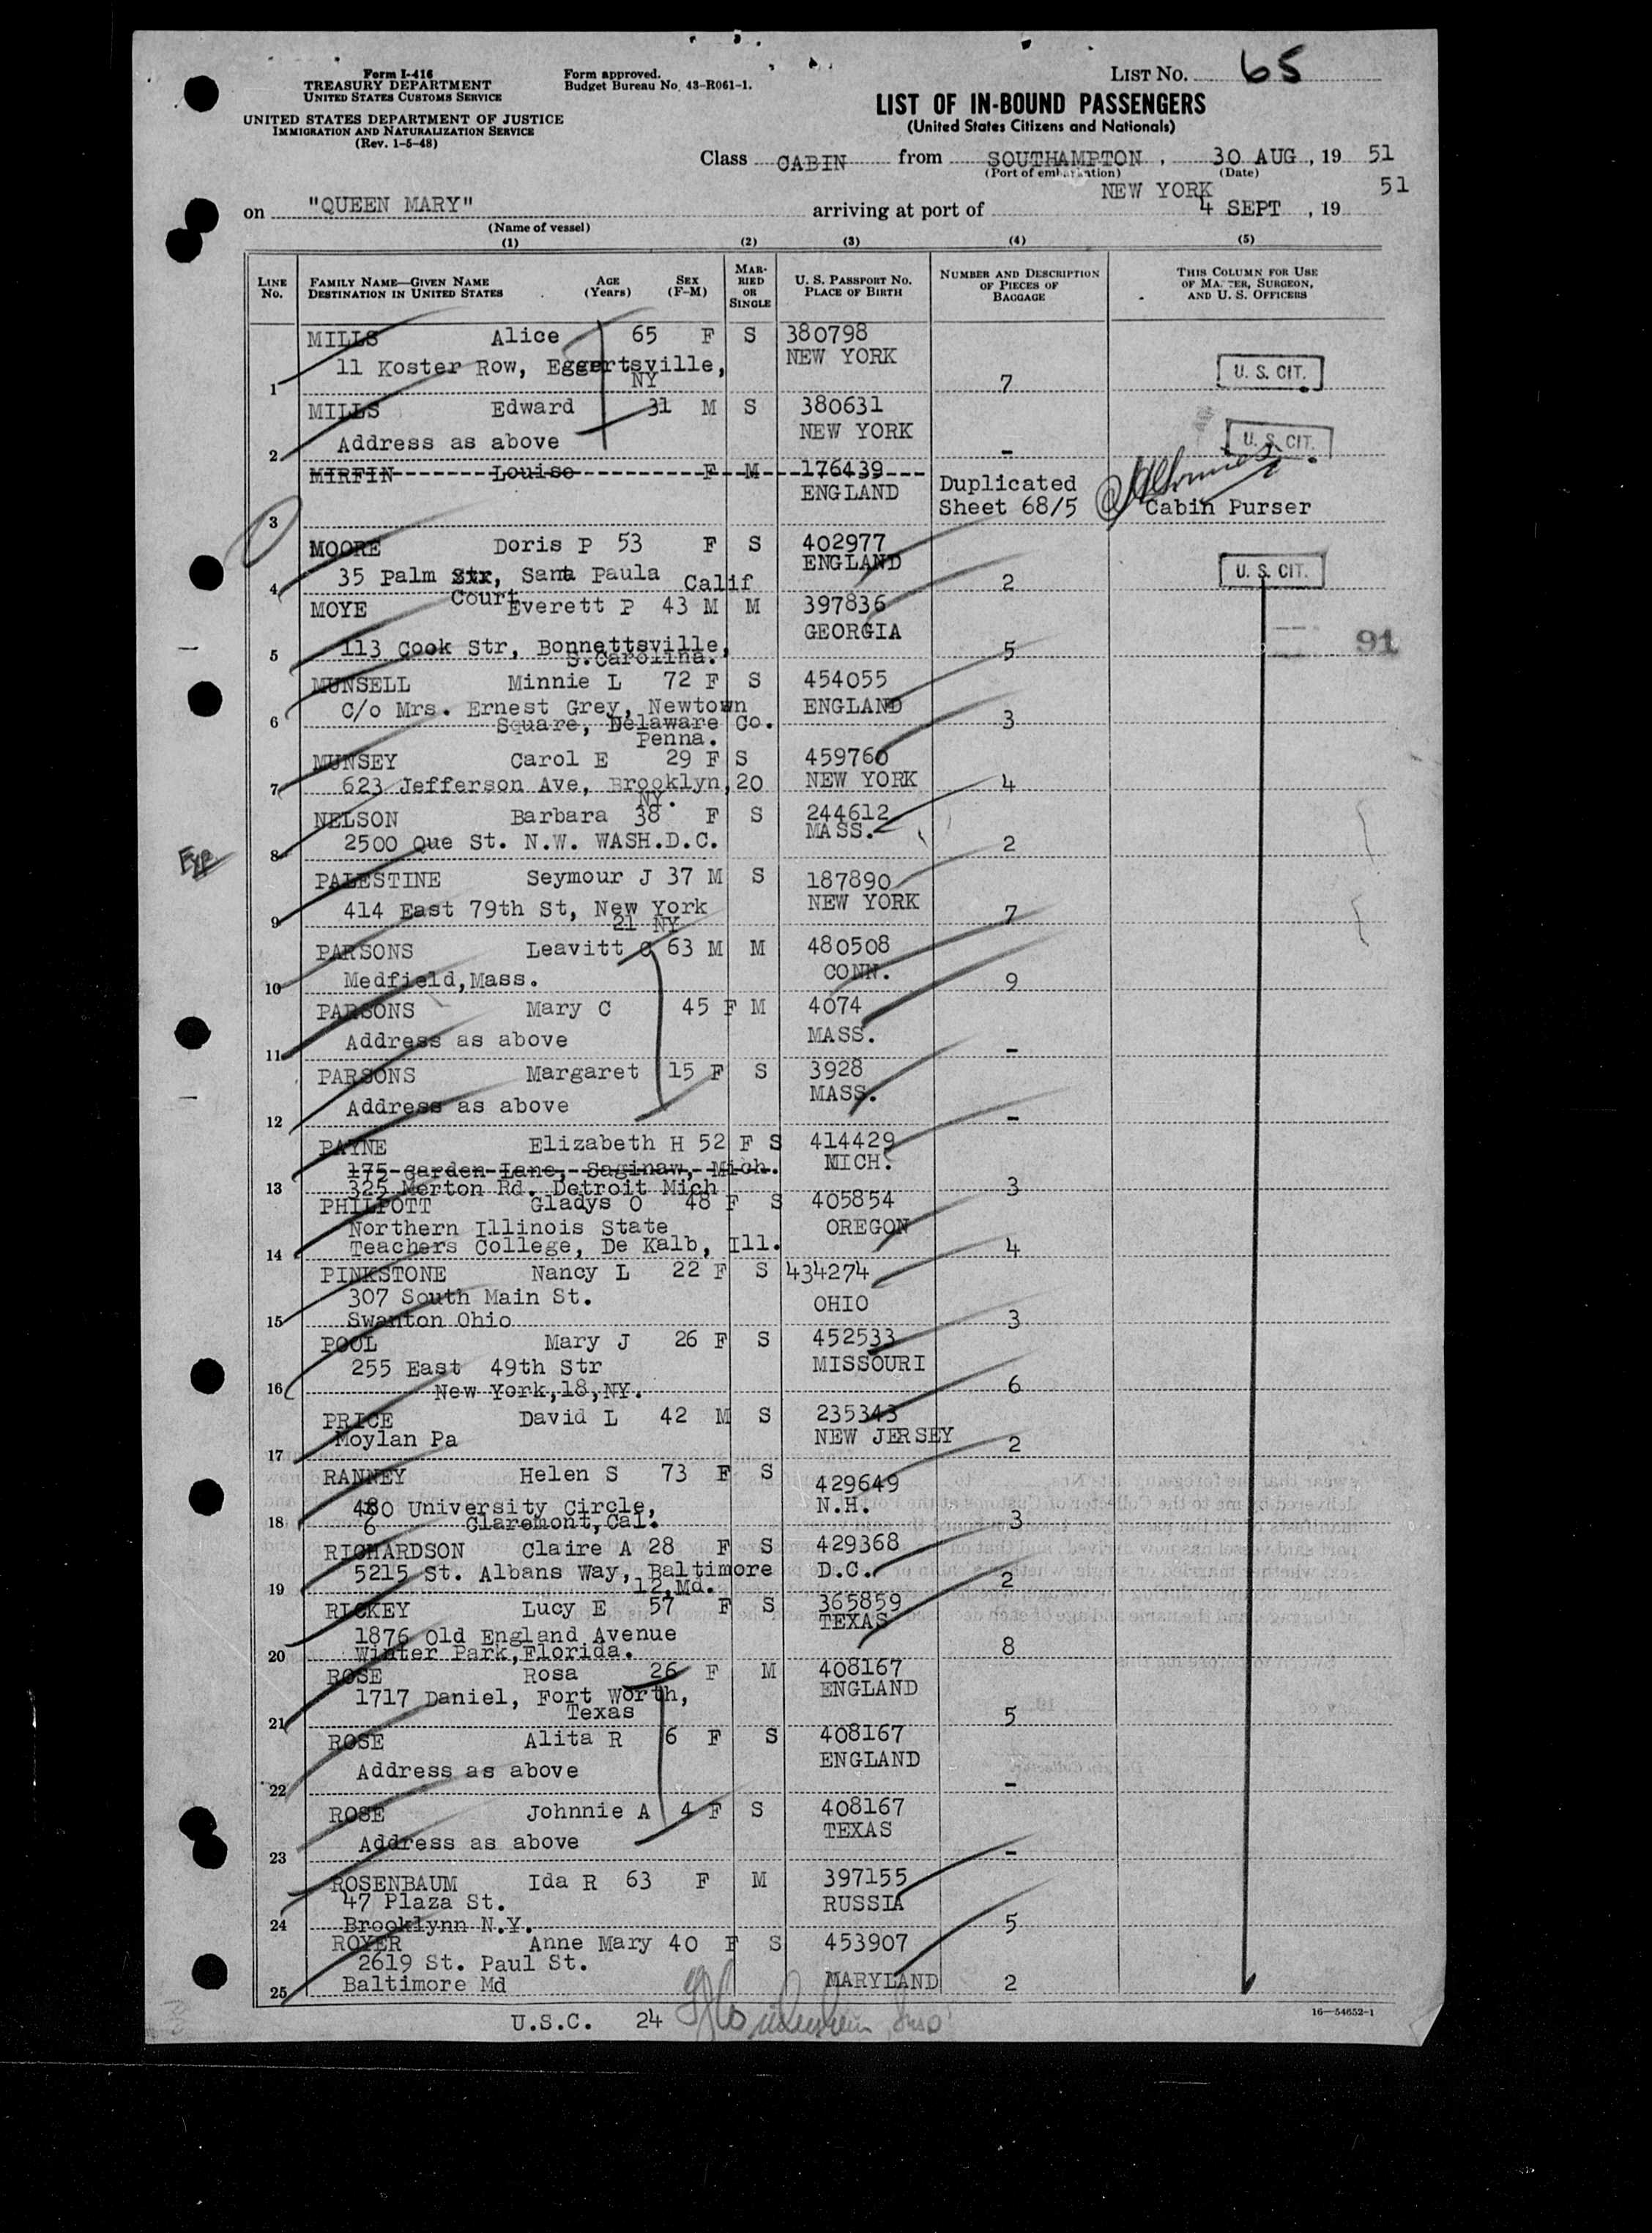 Form I-416
TREASURY DEPARTMENT
UNITED STATES CUSTOMS SERVICE
UNITED STATES DEPARTMENT OF JUSTICE
IMMIGRATION AND NATURALIZATION SERVICE
(Rev. 1-5-48)
Form approved.
Budget Bureau No. 43-R061-1.
LIST NO. 65
LIST OF IN-BOUND PASSENGERS
(United States Citizens and Nationals)
Class CABIN from SOUTHAMPTON, 30 AUG, 19 51
(Port of embarkation) (Date)
on "QUEEN MARY" arriving at port of NEW YORK 4 SEPT, 19 51
(Name of vessel)
(1) (2) (3) (4) (5)
LINE No. FAMILY NAME—GIVEN NAME DESTINATION IN UNITED STATES AGE (Years) SEX (F-M) MARRIED OR SINGLE U. S. PASSPORT NO. PLACE OF BIRTH NUMBER AND DESCRIPTION OF PIECES OF BAGGAGE THIS COLUMN FOR USE OF MASTER, SURGEON, AND U. S. OFFICERS
MILLS Alice 65 F S 380798
11 Koster Row, Eggertsville, NEW YORK
1 NY 7 U. S. CIT.
MILLS Edward 31 M S 380631
Address as above NEW YORK
2 - U. S. CIT.
MIRFIN Louise F M 176439
ENGLAND Duplicated
3 Sheet 68/5 Cabin Purser
MOORE Doris P 53 F S 402977
35 Palm Str, Santa Paula Calif ENGLAND
4 Court 2 U. S. CIT.
MOYE Everett P 43 M M 397836
GEORGIA 91
5 113 Cook Str, Bonnettsville, S.Carolina. 5
MUNSELL Minnie L 72 F S 454055
C/o Mrs. Ernest Grey, Newtown ENGLAND
6 Square, Delaware Co. 3
Penna.
MUNSEY Carol E 29 F S 459760
7 623 Jefferson Ave, Brooklyn,20 NEW YORK 4
NY.
NELSON Barbara 38 F S 244612
Exp 8 2500 Que St. N.W. WASH.D.C. MASS. 2
PALESTINE Seymour J 37 M S 187890
414 East 79th St, New York NEW YORK
9 21 NY 7
PARSONS Leavitt C 63 M M 480508
10 Medfield,Mass. CONN. 9
PARSONS Mary C 45 F M 4074
11 Address as above MASS. -
PARSONS Margaret 15 F S 3928
Address as above MASS.
12 -
PAYNE Elizabeth H 52 F S 414429
175 Garden Lane, Saginaw, Mich. MICH.
13 325 Merton Rd. Detroit Mich 3
PHILPOTT Gladys O 48 F S 405854
Northern Illinois State OREGON
14 Teachers College, De Kalb, Ill. 4
PINKSTONE Nancy L 22 F S 434274
307 South Main St. OHIO
15 Swanton Ohio 3
POOL Mary J 26 F S 452533
255 East 49th Str MISSOURI
16 New York,18,NY. 6
PRICE David L 42 M S 235343
17 Moylan Pa NEW JERSEY 2
RANNEY Helen S 73 F S 429649
480 University Circle, N.H.
18 6 Claremont,Cal. 3
RICHARDSON Claire A 28 F S 429368
5215 St. Albans Way, Baltimore D.C.
19 12,Md. 2
RICKEY Lucy E 57 F S 365859
1876 Old England Avenue TEXAS
20 Winter Park,Florida. 8
ROSE Rosa 26 F M 408167
1717 Daniel, Fort Worth, ENGLAND
21 Texas 5
ROSE Alita R 6 F S 408167
Address as above ENGLAND
22 -
ROSE Johnnie A 4 F S 408167
Address as above TEXAS
23 -
ROSENBAUM Ida R 63 F M 397155
47 Plaza St. RUSSIA
24 Brooklynn N.Y. 5
ROYER Anne Mary 40 F S 453907
2619 St. Paul St.
25 Baltimore Md MARYLAND 2
U.S.C. 24
16—54652-1